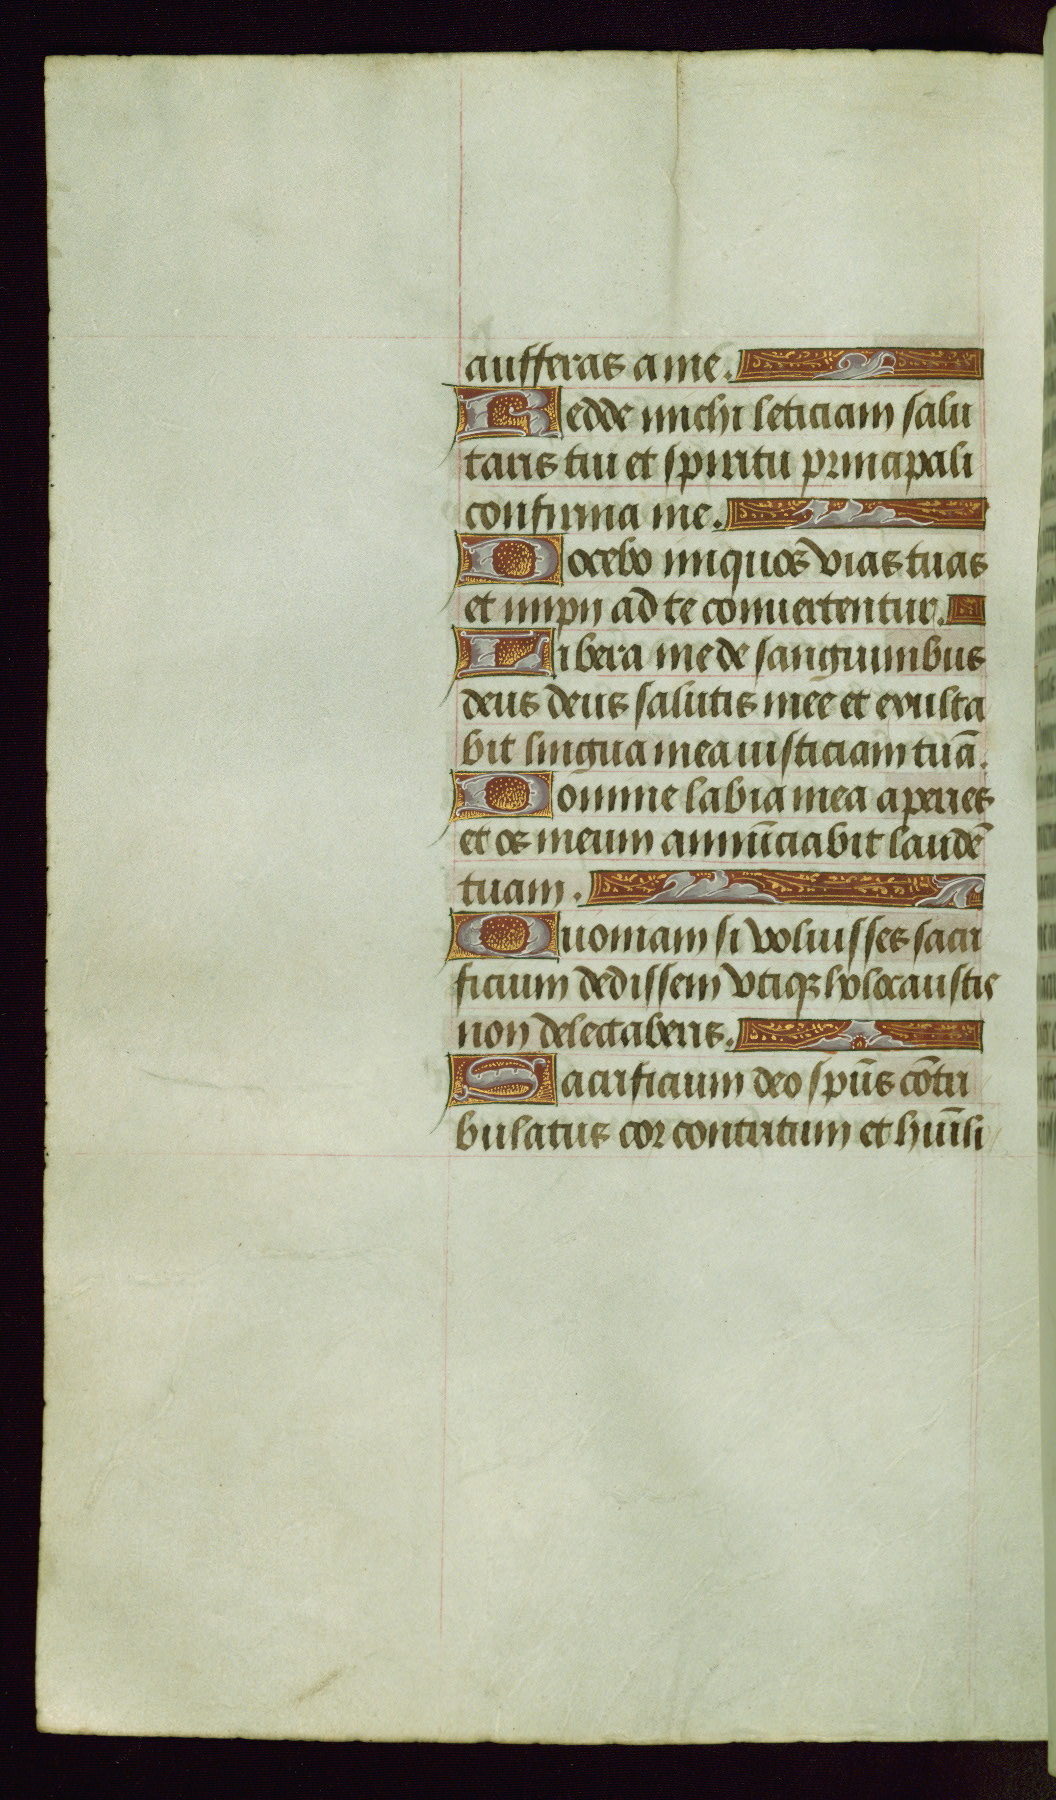 aufferas a me.
Redde michi leticiam salu
taris tui et spiritu principali
confirma me.
Docebo iniquos vias tuas
et impii ad te convertentur.
Libera me de sanguinibus
deus deus salutis mee et exulta
bit lingua mea iusticiam tuā.
Domine labia mea aperies
et os meum annūciabit laudē
tuam.
Quoniam si voluisses sacri
ficium dedissem vtiqz holocaustis
non delectaberis.
Sacrificium deo spūs cōtri
bulatus cor contritum et hūili